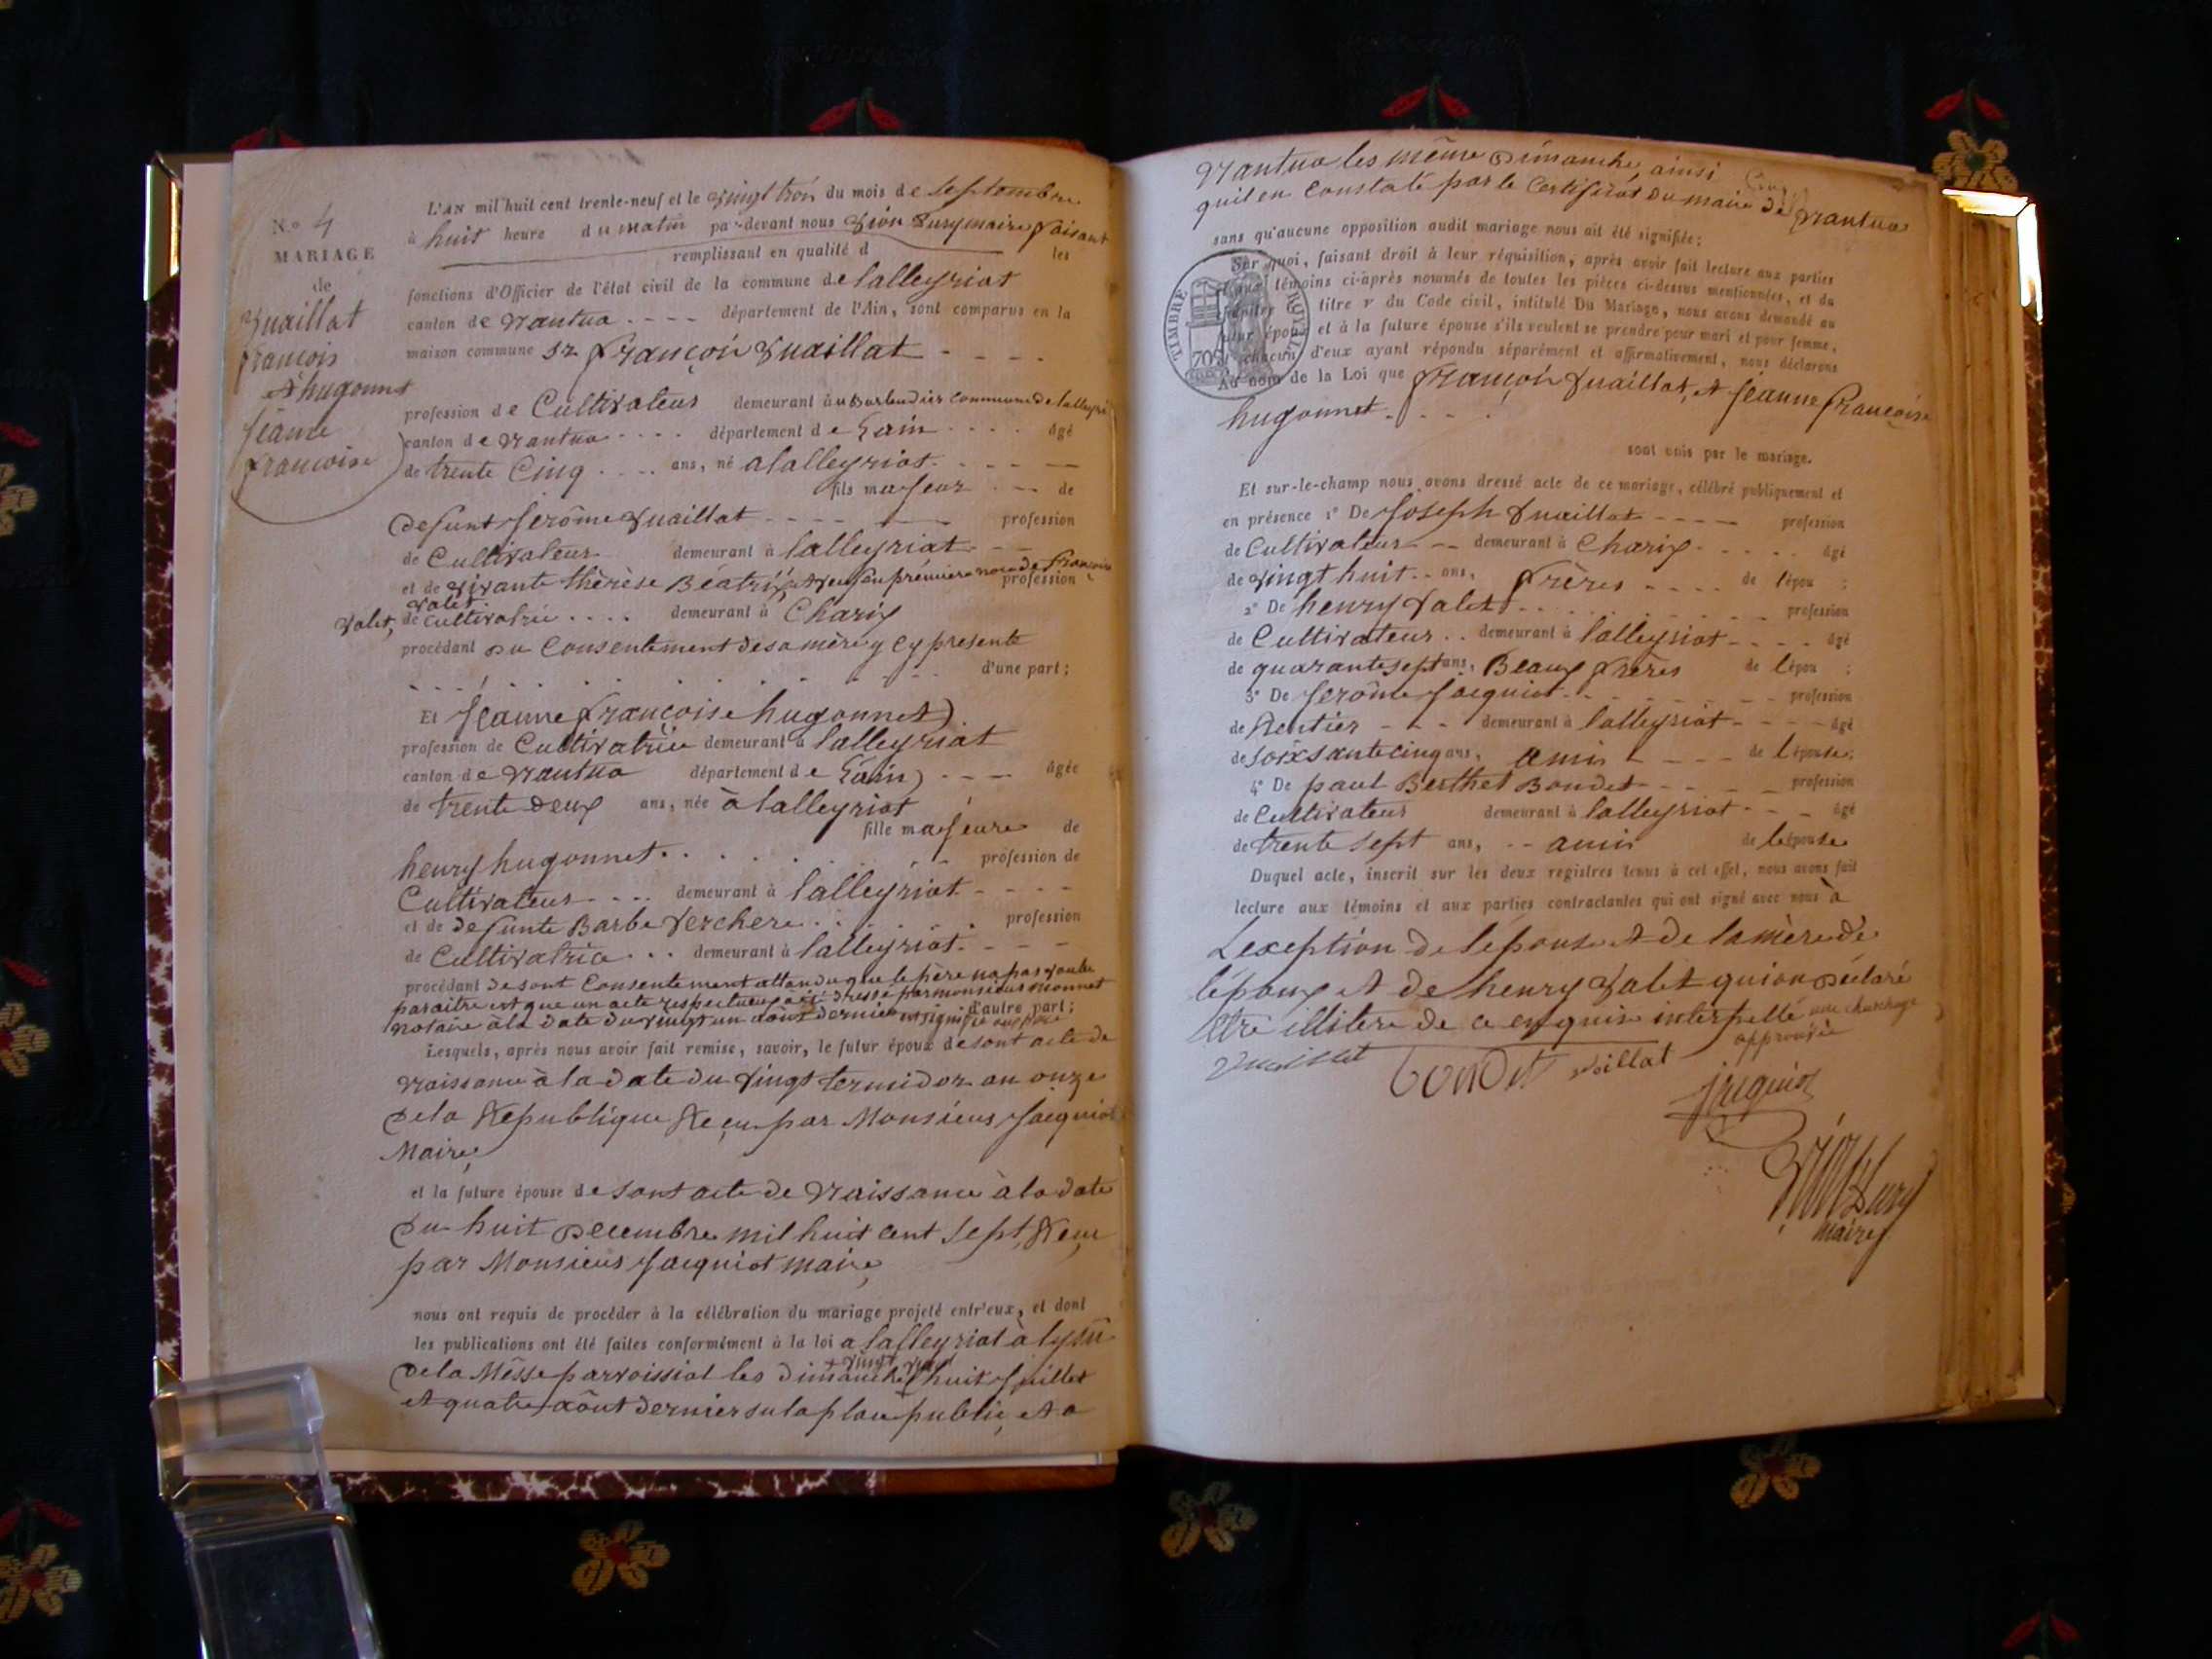 N.o 4
MARIAGE
de
Vuaillat
françois
et hugonnet
Jeanne
francoise
L'AN mil huit cent trente-neuf et le vingt trois du mois de septembre
à huit heure du matin par-devant nous maire faisant
remplissant en qualité d les
fonctions d'Officier de l'état civil de la commune de lalleyriat
canton de nantua département de l'Ain, sont comparus en la
maison commune Sr françois Vuaillat
profession de Cultivateur demeurant à commune de lalleyri
canton de nantua département de Lain âgé
de trente Cinq ans, né a lalleyriat
fils majeur de
defunt Jerôme Vuaillat profession
de Cultivateur demeurant à lalleyriat
et de vivante thérèse Béatrix, et veuf en prémiere noce de françoise profession
Valet
Valet, de cultivatrice demeurant à Charix
procédant du Consentement de sa mère y cy presente
d'une part;
Et Jeanne françoise hugonnet
profession de Cultivatrice demeurant à lalleyriat
canton de nantua département de Lain âgée
de trente deux ans, née à lalleyriat
fille majeure de
henry hugonnet profession de
Cultivateur demeurant à lalleyriat
et de defunte Barbe Verchere profession
de Cultivatrice demeurant à lalleyriat
procédant de sont Consentement attandu que le père na pas voulu
paraitre et que un acte respectueux a été dressé par monsieur monnet
notaire à la date du vingt un aout dernier et signifié au père d'autre part;
Lesquels, après nous avoir fait remise, savoir, le futur époux de sont acte de
naissance à la date du vingt termidor an onze
de la Republique Reçu par Monsieur Jacquiot
Maire,
et la future épouse de sont acte de naissance à la date
du huit Decembre mil huit cent sept, Reçu
par Monsieur Jacquiot maire,
nous ont requis de procéder à la célébration du mariage projeté entr'eux, et dont
les publications ont été faites conformément à la loi a lalleyriat à lysu
vingt
de la Mêsse parroissial les dimanche huit Juillet
et quatre aôut dernier su la place public, et a
nantua les même Dimanche, ainsi
quil en Constaté par le Certificat du maire de nantua
sans qu'aucune opposition audit mariage nous ait été signifiée;
Sur quoi, faisant droit à leur réquisition, après avoir fait lecture aux parties
et aux témoins ci-après nommés de toutes les pièces ci-dessus mentionnées, et du
chapitre titre v du Code civil, intitulé Du Mariage, nous avons demandé au
futur époux et à la future épouse s'ils veulent se prendre pour mari et pour femme,
et chacun d'eux ayant répondu séparément et affirmativement, nous déclarons
Au nom de la Loi que françois Vuaillat, et Jeanne françoise
hugonnet
TIMBRE ROYAL
70
sont unis par le mariage.
Et sur-le-champ nous avons dressé acte de ce mariage, célébré publiquement et
en présence 1° De Joseph Vuaillat profession
de Cultivateur demeurant à Charix âgé
de vingt huit ans, frères de lépou ;
2° De henry Valet profession
de Cultivateur demeurant à lalleyriat âgé
de quarante sept ans, Beaux frères de lépou ;
3° De Jerôme Jacquiot profession
de Rentier demeurant à lalleyriat âgé
de soixsante cinq ans, amis de lépouse;
4° De paul Berthet Bondet profession
de Cultivateur demeurant à lalleyriat âgé
de trente sept ans, amis de lépouse
Duquel acte, inscrit sur les deux registres tenus à cet effet, nous avons fait
lecture aux témoins et aux parties contractantes qui ont signé avec nous à
Lexeption de lépouse et de la mère de
lépoux et de henry Valet qui on déclaré
être illitere de ce enquis interpellé une churchage
approuvée
Bondet Voillat
jacquiot
maire